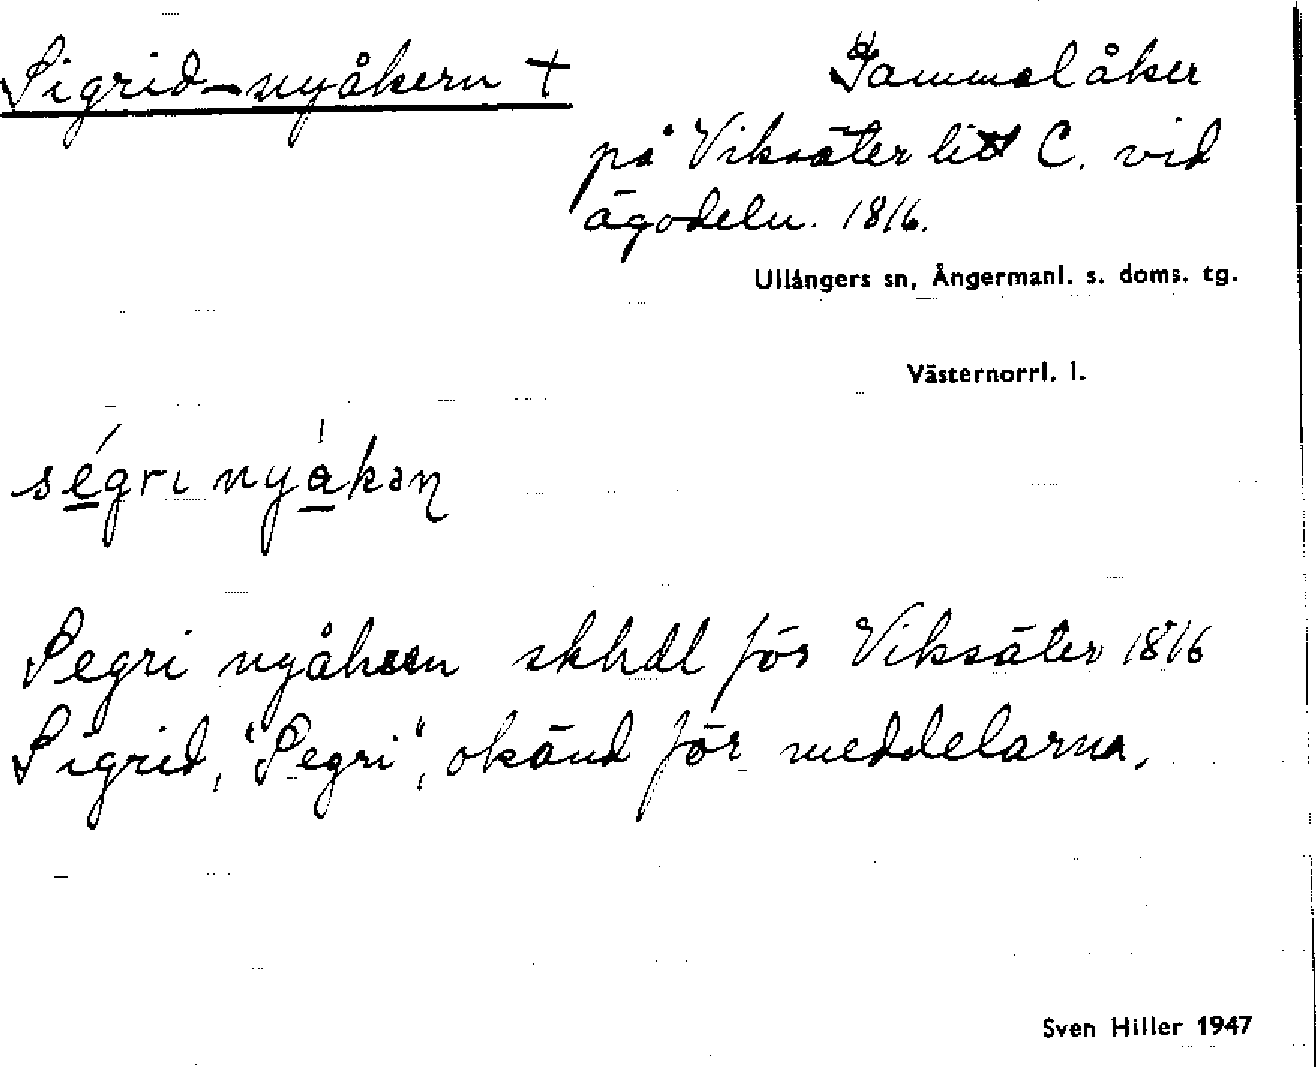 Sigrid-nyåkern †
Gammal åker
på Viksäter litt C. vid
ägodeln. 1816.
Ullångers sn, Ångermanl. s. doms. tg.
Västernorrl. l.
ségrı nyåkəɳ
Segri nyåkern skhdl för Viksäter 1816
Sigrid, "Segri", okänd för meddelarna.
Sven Hiller 1947